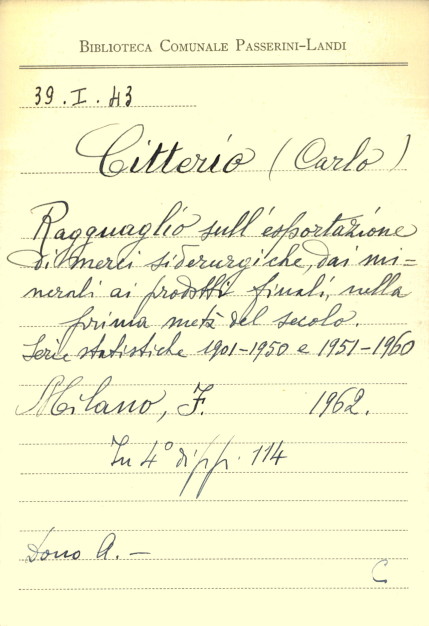 BIBLIOTECA COMUNALE PASSERINI-LANDI
39.I.43
Citterio (Carlo)
Ragguaglio sull'esportazione
di merci siderurgiche, dai mi=
nerali ai prodotti finali, nella
prima metà del secolo.
Serie statistiche 1901-1950 e 1951-1960
Milano, F. 1962.
In 4° di pp. 114
Dono A. —
C